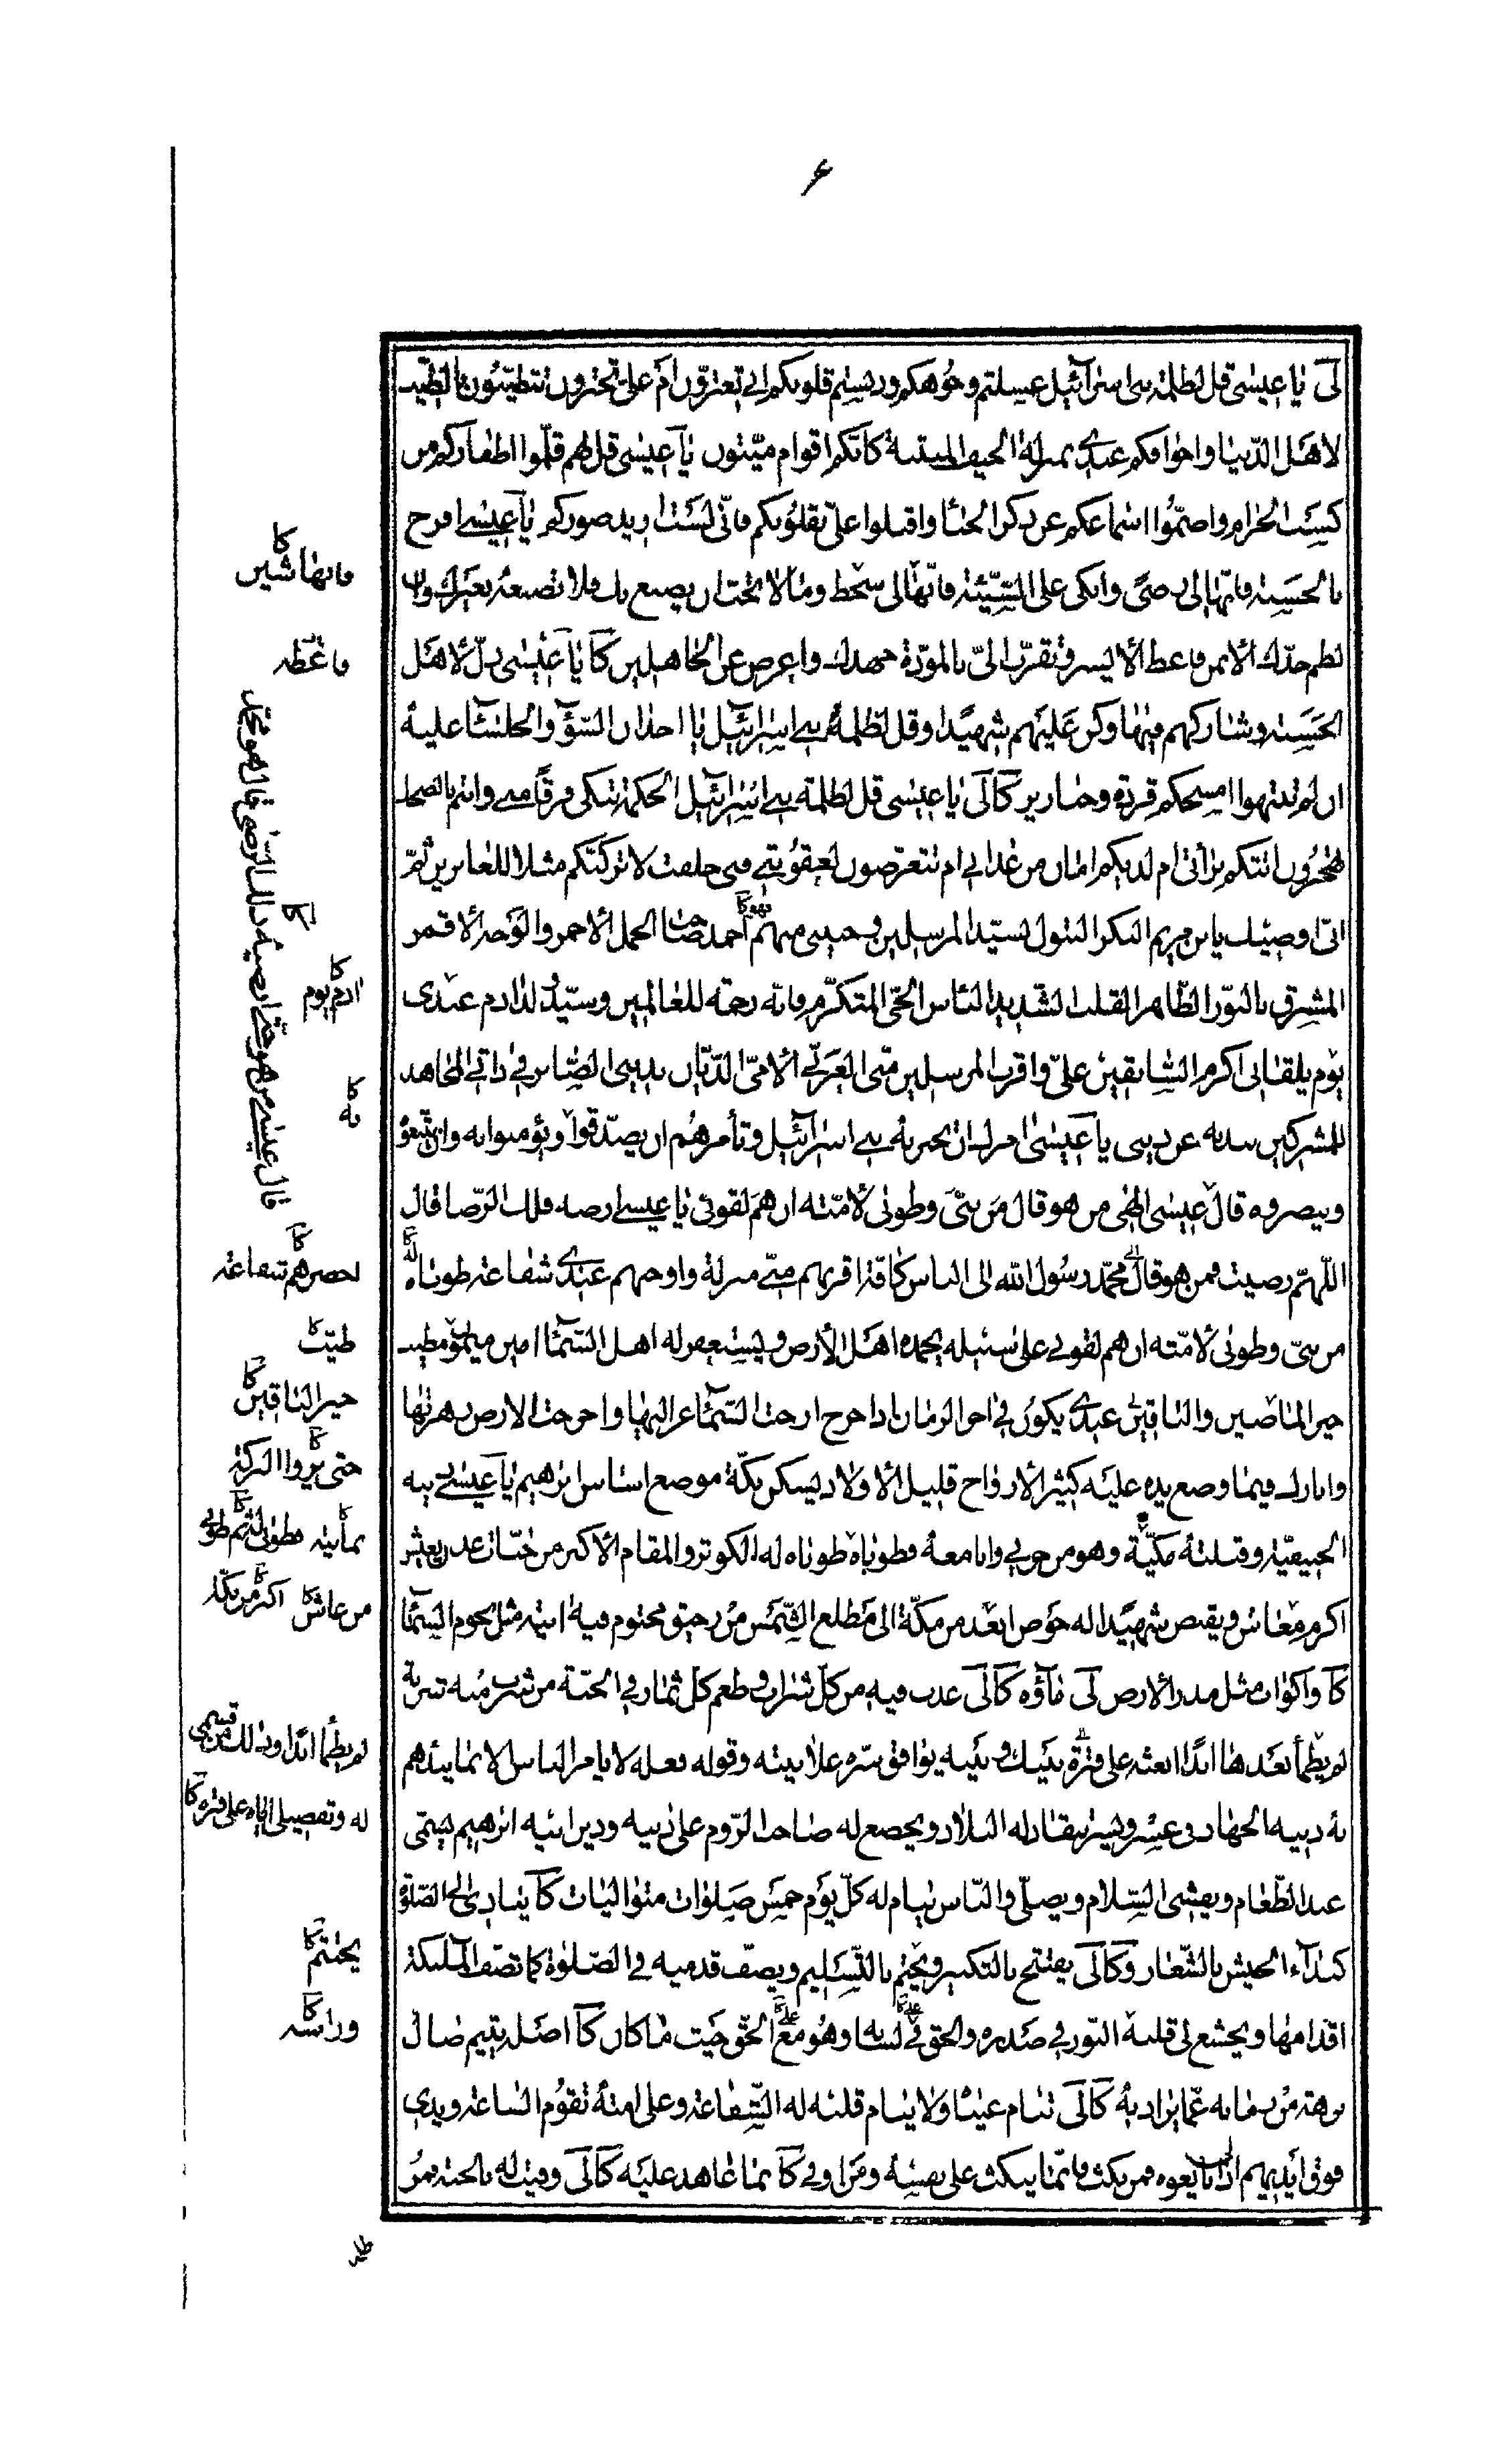 ۶
لى يا عيسى قل لظلمة بنى اسرآئيل غسلتم وجوهكم ودنستم قلوبكم ابى تغترّون ام علىّ تجترؤن تتطيّبون بالطّيب
لاهل الدّنيا واجوافكم عندى بمنزلة الجيف المنتنة كانّكم اقوام ميّتون يا عيسى قل لهم قلّموا اظفاركم من
كسب الحرام واصمّوا اسماعكم عن ذكر الخنا واقبلوا علىّ بقلوبكم فانّى لست اريد صوركم يا عيسى افرح
بالحسنة فانّها لى رضىً وابك على السّيّئة فانّها لى سخط وما لا تحبّ ان يصنع بك فلا تصنعه بغيرك وان
لطم خدّك الايمن فاعط الايسر وتقرّب الىّ بالمودّة جهدك واعرض عن الجاهلين كا يا عيسى دلّ لاهل
الحسنة وشاركهم فيها وكن عليهم شهيدا وقل لظلمة بنى اسرائيل يا اخدان السّوء والجلسآء عليه
ان لم تنتهوا امسخكم قردة وخنازير كا لى يا عيسى قل لظلمة بنى اسرائيل الحكمة تبكى فرقا منى وانتم بالضحك
تهجرون اتتكم براءتى ام لديكم امان من عذابى ام تتعرّضون لعقوبتى فبى حلفت لاتركنّكم مثلا للغابرين ثمّ
انّى اوصيك يابن مريم البكر البتول بسيّد المرسلين وحبيبى منهم احمد صاحب الجمل الاحمر والوجه الاقمر
المشرق بالنور الطّاهر القلب الشديد الباس الحيّى المتكرّم فانه رحمة للعالمين وسيّد ولد ادم عندى
يوم يلقانى اكرم السّابقين علىّ واقرب المرسلين منّى العربىّ الامىّ الدّيّان بدينى الصّابر فى ذاتى المجاهد
للمشركين ببدنه عن دينى يا عيسى امرك ان تخبر به بنى اسرآئيل وتأمرهم ان يصدّقوا ويؤمنوا به وان يتّبعوه
وينصروه قال عيسى الهى من هو قال من نبىّ وطوبى لامّته ان هم لقونى يا عيسى ارضه فلك الرّضا قال
اللّهمّ رضيت فمن هو قال محمّد رسول الله الى الناس كافّة اقربهم منّى منزلة واوجبهم عندى شفاعة طوباه
من نبىّ وطوبى لامّته ان هم لقونى على سبيله يحمده اهل الارض ويستغفر له اهل السّمآء امين ميمون مطيب
خير الماضين والباقين عندى يكون فى اخر الزمان اذا خرج ارخت السّمآء عزاليها واخرجت الارض زهرتها
وابارك فيما وضع يده عليه كثير الازواج قليل الاولاد يسكن بكّة موضع اساس ابرهيم يا عيسى دينه
الحنيفيّة وقبلته مكيّة وهو من حزبى وانا معه فطوباه طوباه له الكوثر والمقام الاكبر من جنّات عدن يعيش
اكرم معاش ويقبض شهيدا له حوض ابعد من مكّة الى مطلع الشّمس من رحيق مختوم فيه انية مثل نجوم السّمآء
كا واكواب مثل مدر الارض لى ماؤه كا لى عذب فيه من كلّ شراب وطعم كل ثمار فى الجنّة من شرب منه شربة
لم يظمأ بعدها ابدًا ابعثه على فترة بينك وبينه يوافق سرّه علانيته وقوله فعله لا يامر الناس الا بما يبدهم
به دينه الجهاد فى عسر ويسر ينقاد له البلاد ويخضع له صاحب الرّوم على دينه ودين ابيه ابرهيم يسمّى
عند الطّعام ويفشى السّلام ويصلّى والنّاس نيام له كلّ يوم خمس صلوات متواليات كا ينادى الى الصّلوة
كنداء الجيش بالشّعار وكا لى يفتتح بالتكبير ويختم بالتّسليم ويصفّ قدميه فى الصّلوة كما تصفّ الملئكة
اقدامها ويخشع لى قلبه النّور فى صدره والحق فى لسانه وهو مع الحقّ حيث ما كان كا اصله يتيم ضالّ
برهة من زمانه عمّا يراد به كا لى تنام عيناه ولا ينام قلبه له الشّفاعة وعلى امّته تقوم السّاعة ويدى
فوق ايديهم اذا بايعوه فمن نكث فانّما ينكث على نفسه ومن اوفى كا بما عاهد عليه كا لى وفيت له بالجنة فمر
فانها شين كا
فاعطه
قال عيسى من هو حتّى ارضيه فلك الرّضى قال هو محمّد
كا
ادم يوم كا
به كا
احضرهم شفاعة كا
طيّب كا
خير الباقين كا
حتى يروا البركة كا
من عاش كا
لم يظمأ ابدًا وذلك من قسمى
له وتفضيلى اياه على فترة كا
يختتم كا
ورأسه كا